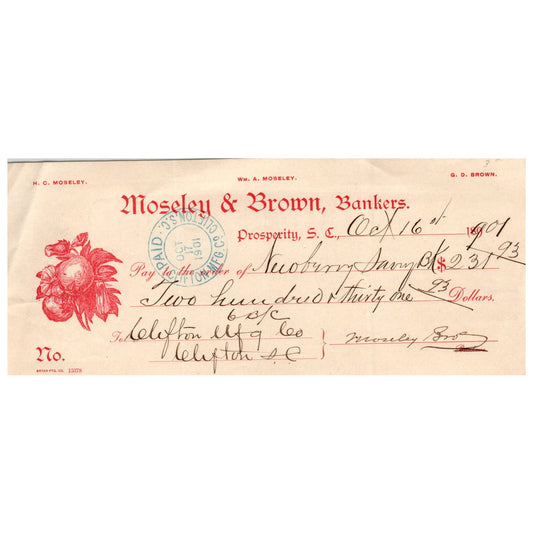 H. C. MOSELEY. WM. A. MOSELEY. G. D. BROWN.
Moseley & Brown, Bankers.
Prosperity, S. C., Oct 16 1901
Pay to the order of Newberry Savng Bk $231 93
Two hundred & thirty one 93 Dollars.
To Clifton Mfg Co
Clifton S. C
Moseley Bros
No.
BRYAN PTG. CO. 15378
PAID CLIFTON MFG CO CLIFTON, S.C.